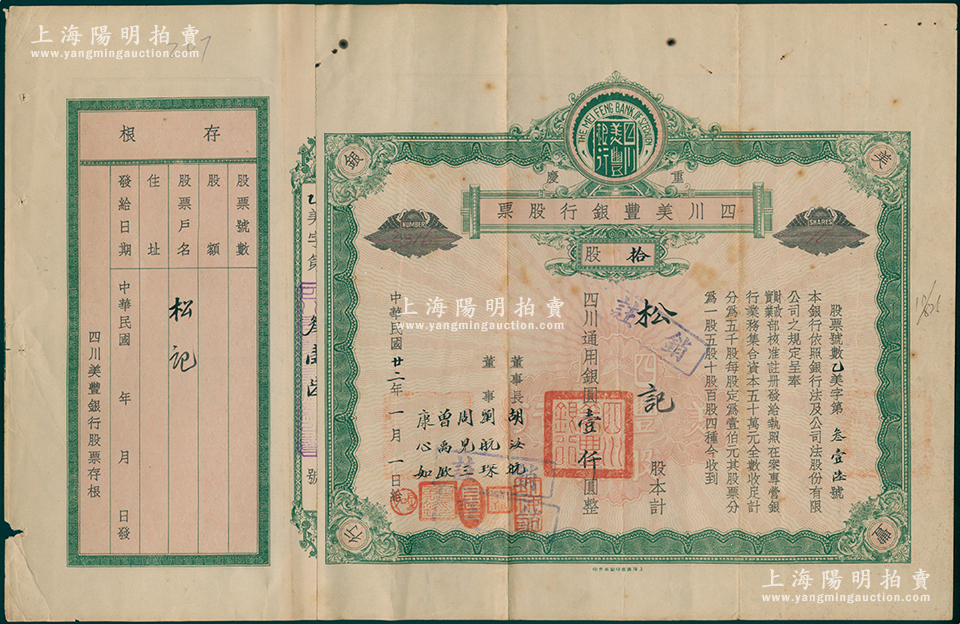 上海陽明拍賣
www.yangmingauction.com
上海陽明拍賣
www.yangmingauction.com
THE MEI FENG BANK OF SZECHUEN
四川美豐銀行
重慶
四川美豐銀行股票
NUMBER
SHARES
拾股
美
豐
銀
股票號數乙美字第叁壹陸號
本銀行依照銀行法及公司法股份有限
公司之規定呈奉
財政部
實業部核准註冊發給執照在案專營銀
行業務集合資本五十萬元全數收足計
分為五千股每股定為壹佰元其股票分
為一股五股十股百股四種今收到
松記
股本計
四川通用銀圓壹仟圓整
董事長 胡汝航
董事 劉航琛
周見三
曾禹欽
康心如
中華民國廿二年一月一日給
註銷
乙美字第
號
存根
股票號數
股額
股票戶名
松記
住址
發給日期
中華民國 年 月 日發
四川美豐銀行股票存根
上海陽明拍賣
www.yangmingauction.com
上海陽明拍賣
www.yangmingauction.com